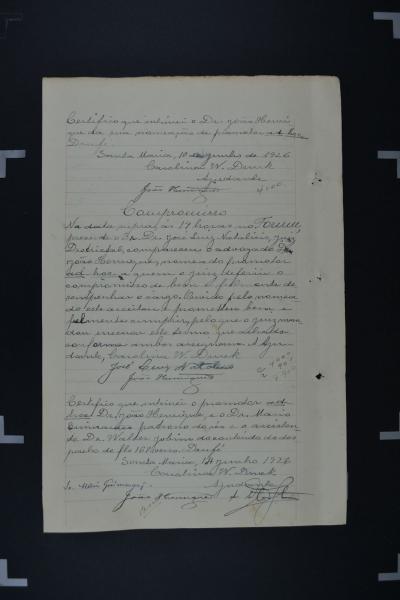 Certifico que intimei o Dr. João Henri
que da sua nomeação de promotor ad hoc.
Doufé.
Santa Maria, 10 junho de 1926
Carolina W. Druck
Ajudante
João Henriques
4.000
Compromisso
Na data supra, ás 17 horas no Forum,
presente o Sr. Dr. José Luiz Natalicio, juiz
Districtal, compareceu o advogado Dr.
João Henrique, nomeado promotor
ad hoc, a quem o juiz deferiu o
compromisso de bem e fielmente de-
sempenhar o cargo. Ouvido pelo nomea
do este acceitou e prometteu bem e
fielmente cumprir, pelo que o juiz man
dou encerrar este termo que vai de
conforme ambos assignam. A Aju-
dante, Carolina W. Druck
José Luiz Natalicio
João Henriques
Certifico que intimei o promotor ad
hoc Dr. João Henrique, e o Dr. Mario
Guimarães patrono do réo e o assisten
te Dr. Walter Jobim do conteúdo do des
pacho de fls 16 verso. Doufé
Santa Maria, 14 junho 1926
Carolina W. Druck
Ajudante
Mario Guimarães
João Henriques